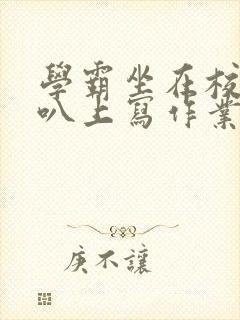 學霸坐在校
叭上寫作業
庚不讓